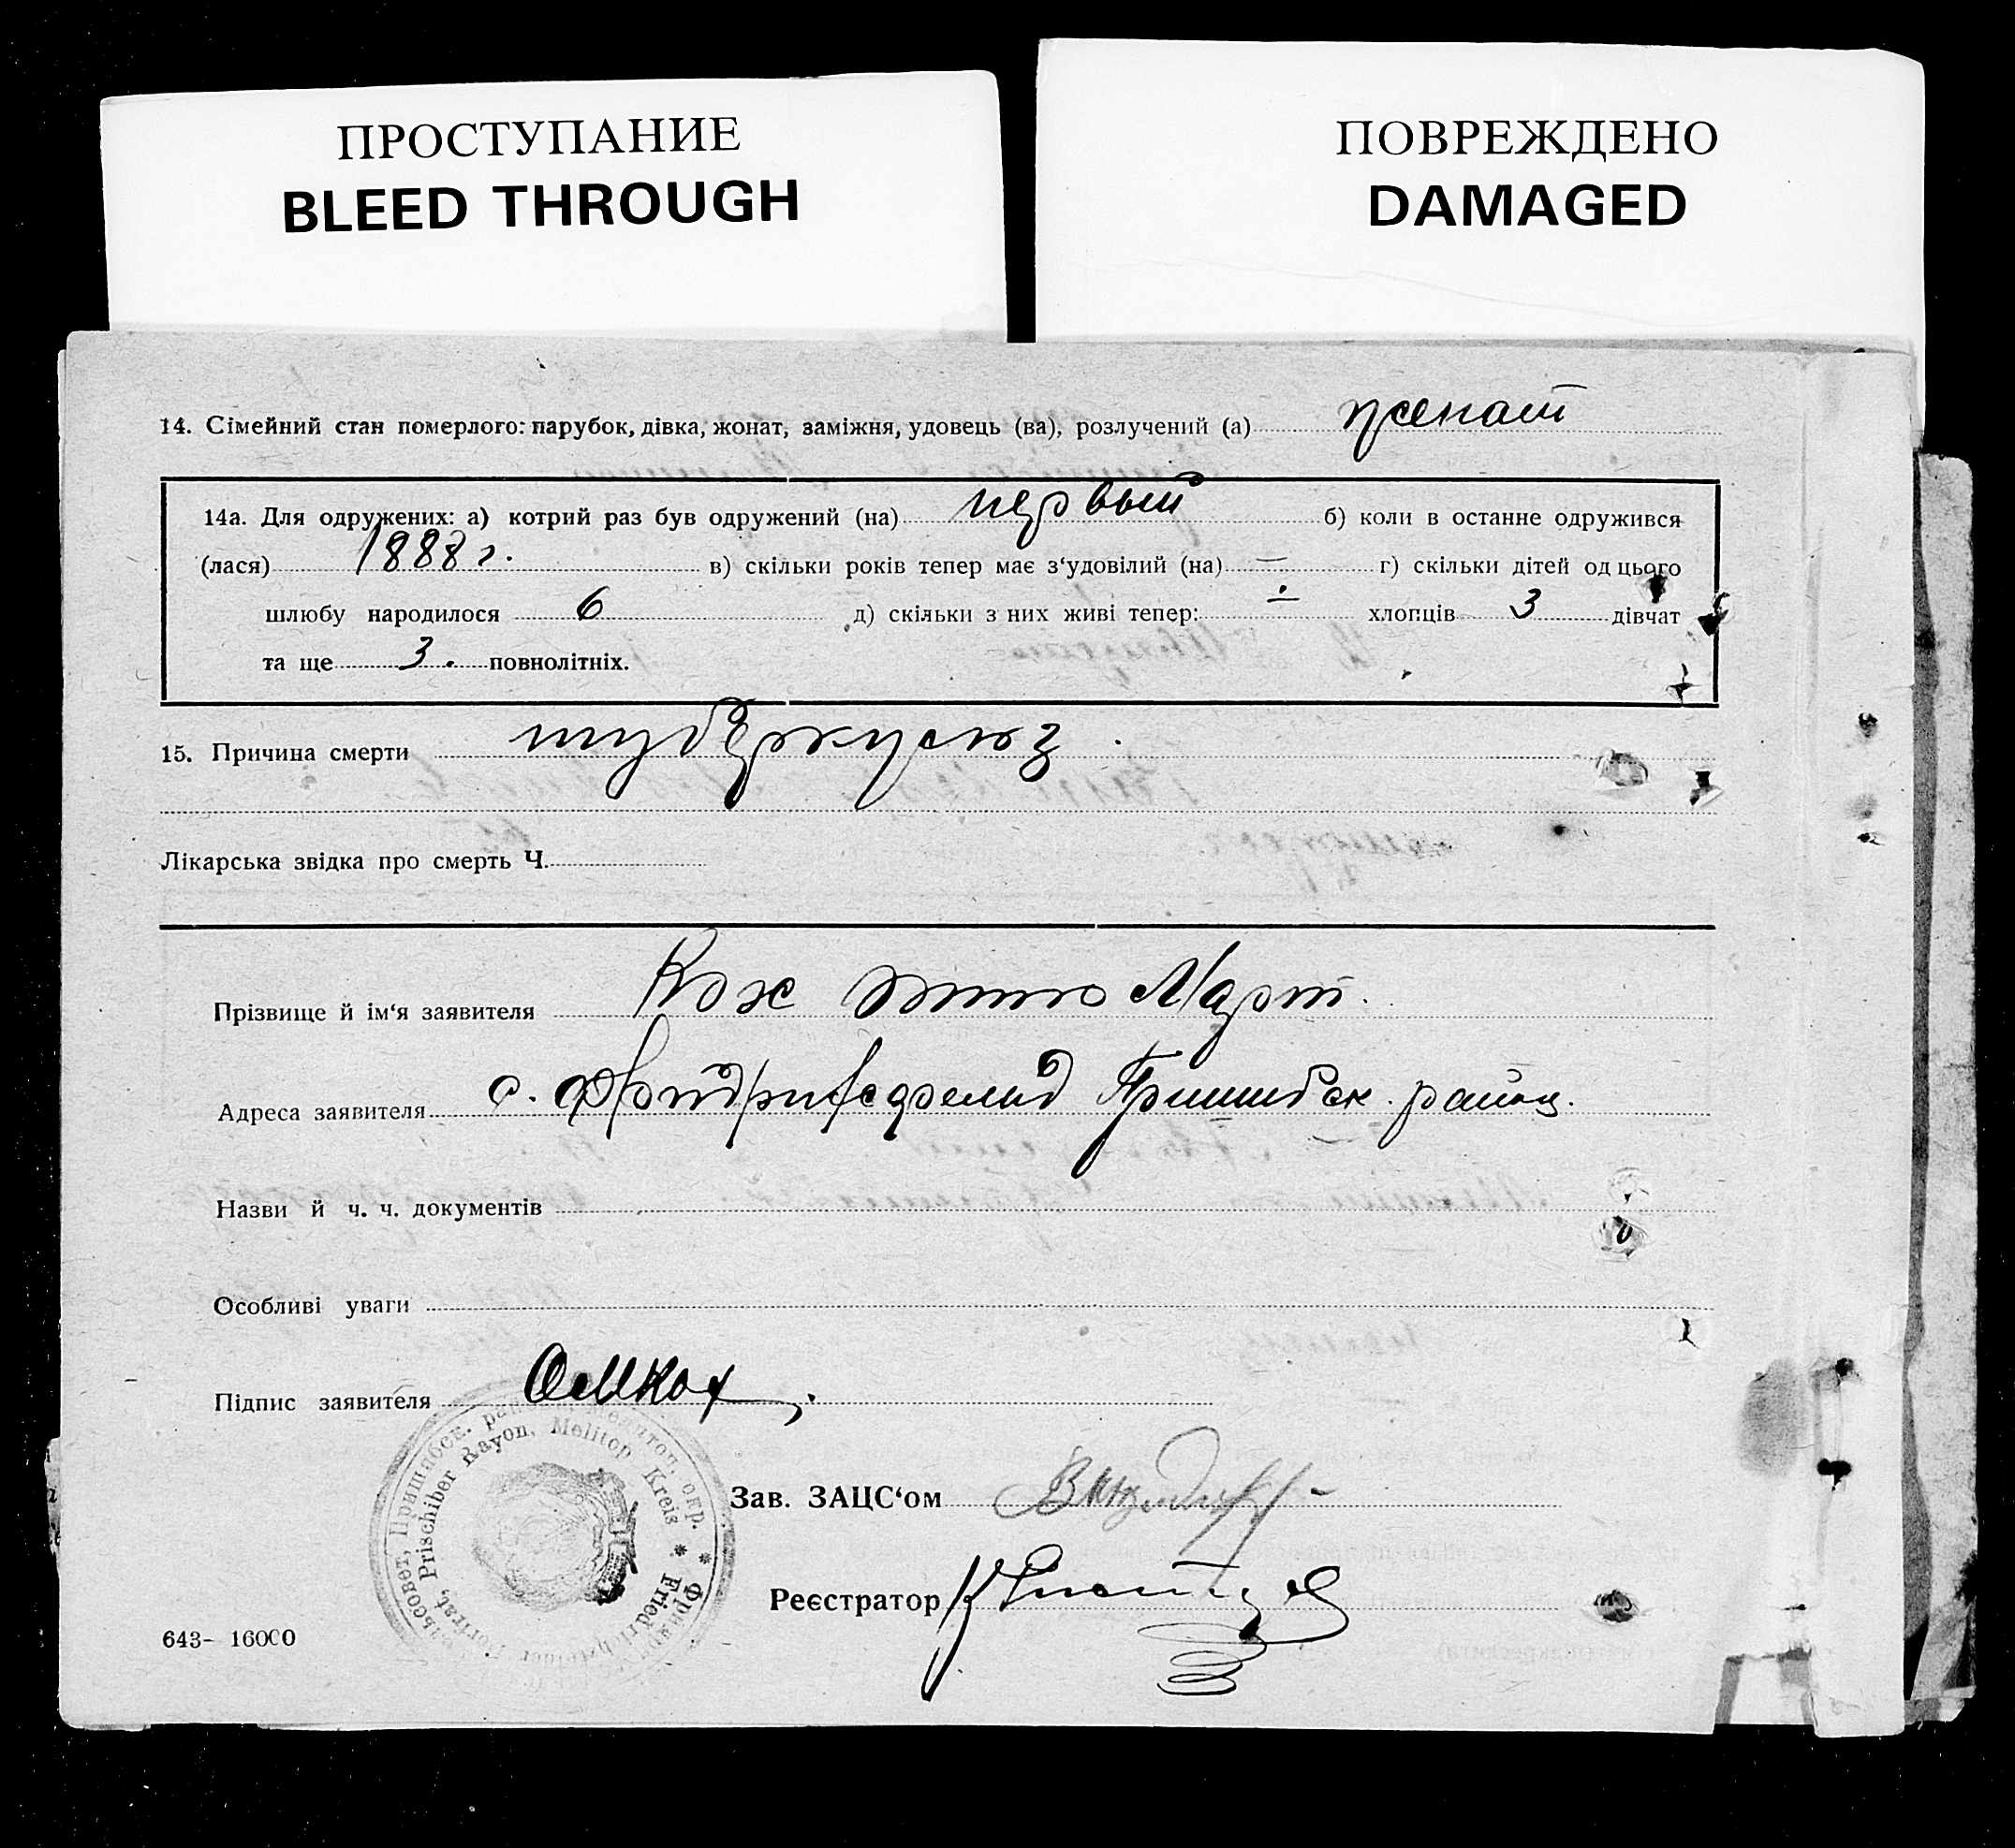 ПРОСТУПАНИЕ
BLEED THROUGH
ПОВРЕЖДЕНО
DAMAGED
14. Сімейний стан померлого: парубок, дівка, жонат, заміжня, удовець (ва), розлучений (а) женат
14а. Для одружених: а) котрий раз був одружений (на) первый б) коли в останнє одружився
(лася) 1888 г. в) скільки років тепер має з‘удовілий (на) — г) скільки дітей од цього
шлюбу народилося 6 д) скільки з них живі тепер: — хлопців 3 дівчат
та ще 3. повнолітніх.
15. Причина смерти туберкулюз.
Лікарська звідка про смерть Ч.
Прізвище й ім‘я заявителя Кох Отто Март.
Адреса заявителя с. Фридрихсфельд Пришибск. район.
Назви й ч. ч. документів
Особливі уваги
Підпис заявителя ОМКох
Пришибск. Мелитоп. окр. *
Prischiber Rayon, Melitop Kreis *
Зав. ЗАЦС‘ом
Реєстратор
643- 16000